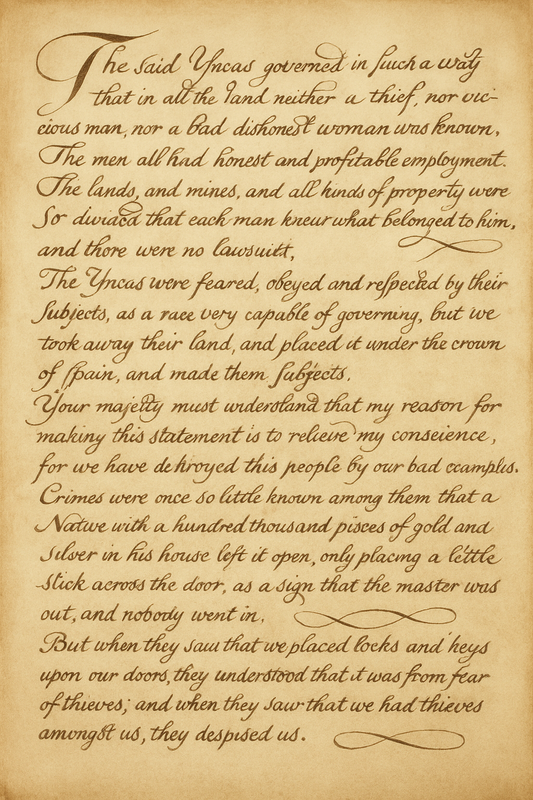 The said Yncas governed in such a way
that in all the land neither a thief, nor vic-
cious man, nor a bad dishonest woman was known,
The men all had honest and profitable employment.
The lands, and mines, and all kinds of property were
So divided that each man knew what belonged to him,
and there were no lawsuits,
The Yncas were feared, obeyed and respected by their
Subjects, as a race very capable of governing, but we
took away their land, and placed it under the crown
of Spain, and made them Subjects.
Your majesty must understand that my reason for
making this statement is to relieve my conscience,
for we have destroyed this people by our bad examples.
Crimes were once so little known among them that a
Native with a hundred thousand pisces of gold and
silver in his house left it open, only placing a little
stick across the door, as a sign that the master was
out, and nobody went in.
But when they saw that we placed locks and keys
upon our doors, they understood that it was from fear
of thieves; and when they saw that we had thieves
amongst us, they despised us.